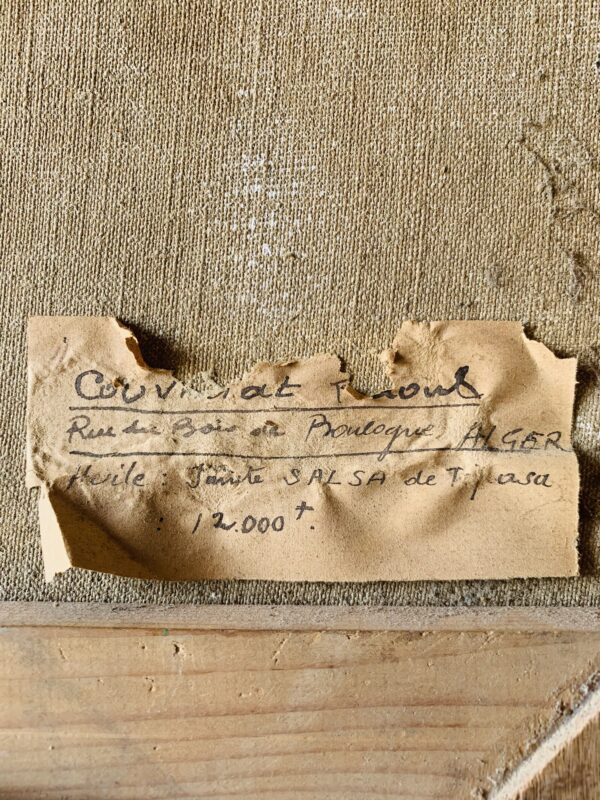 Rue du Bois de Boulogne ALGER
Huile : Sainte SALSA de Tipasa
: 12.000 f.